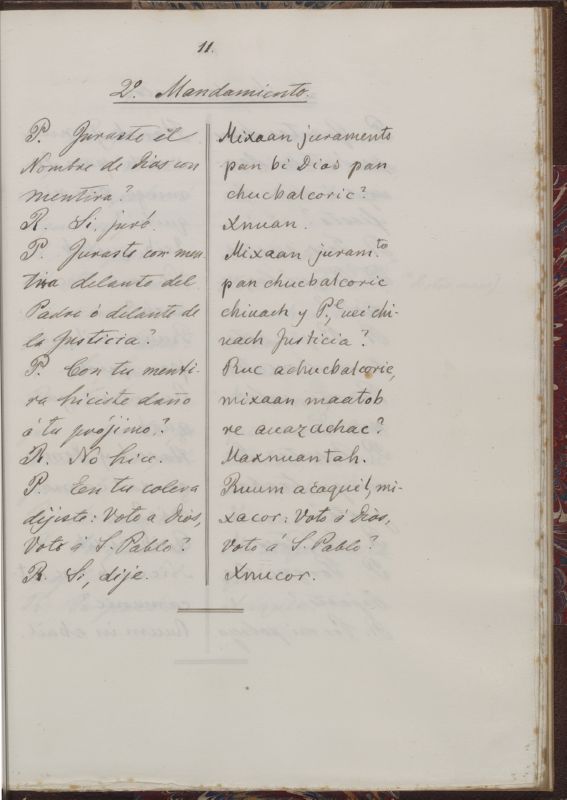 11.
2º Mandamiento.
P. Juraste el
Nombre de Dios con
mentira?
R. Si, juró
P. Juraste con men-
tira delante del
Padre ó delante de
la Justicia?
P. Con tu menti-
ra hiciste daño
á tu prójimo?
R. No hice.
P. En tu colera
dijiste: Voto a Dios,
Voto á S. Pablo?
R. Si, dije.
Mixaan juramento
pan bi Dios pan
chucbalcoric?
Xnuan.
Mixaan juramto
pan chucbalcoric
chiuach y Pe, uei chi-
uach Justicia?
Ruc achucbalcoric,
mixaan maatob
re auazachac?
Maxnuantah.
Ruum acaquil, mi-
xacor: Voto á Dios,
Voto á S. Pablo?
Xnucor.